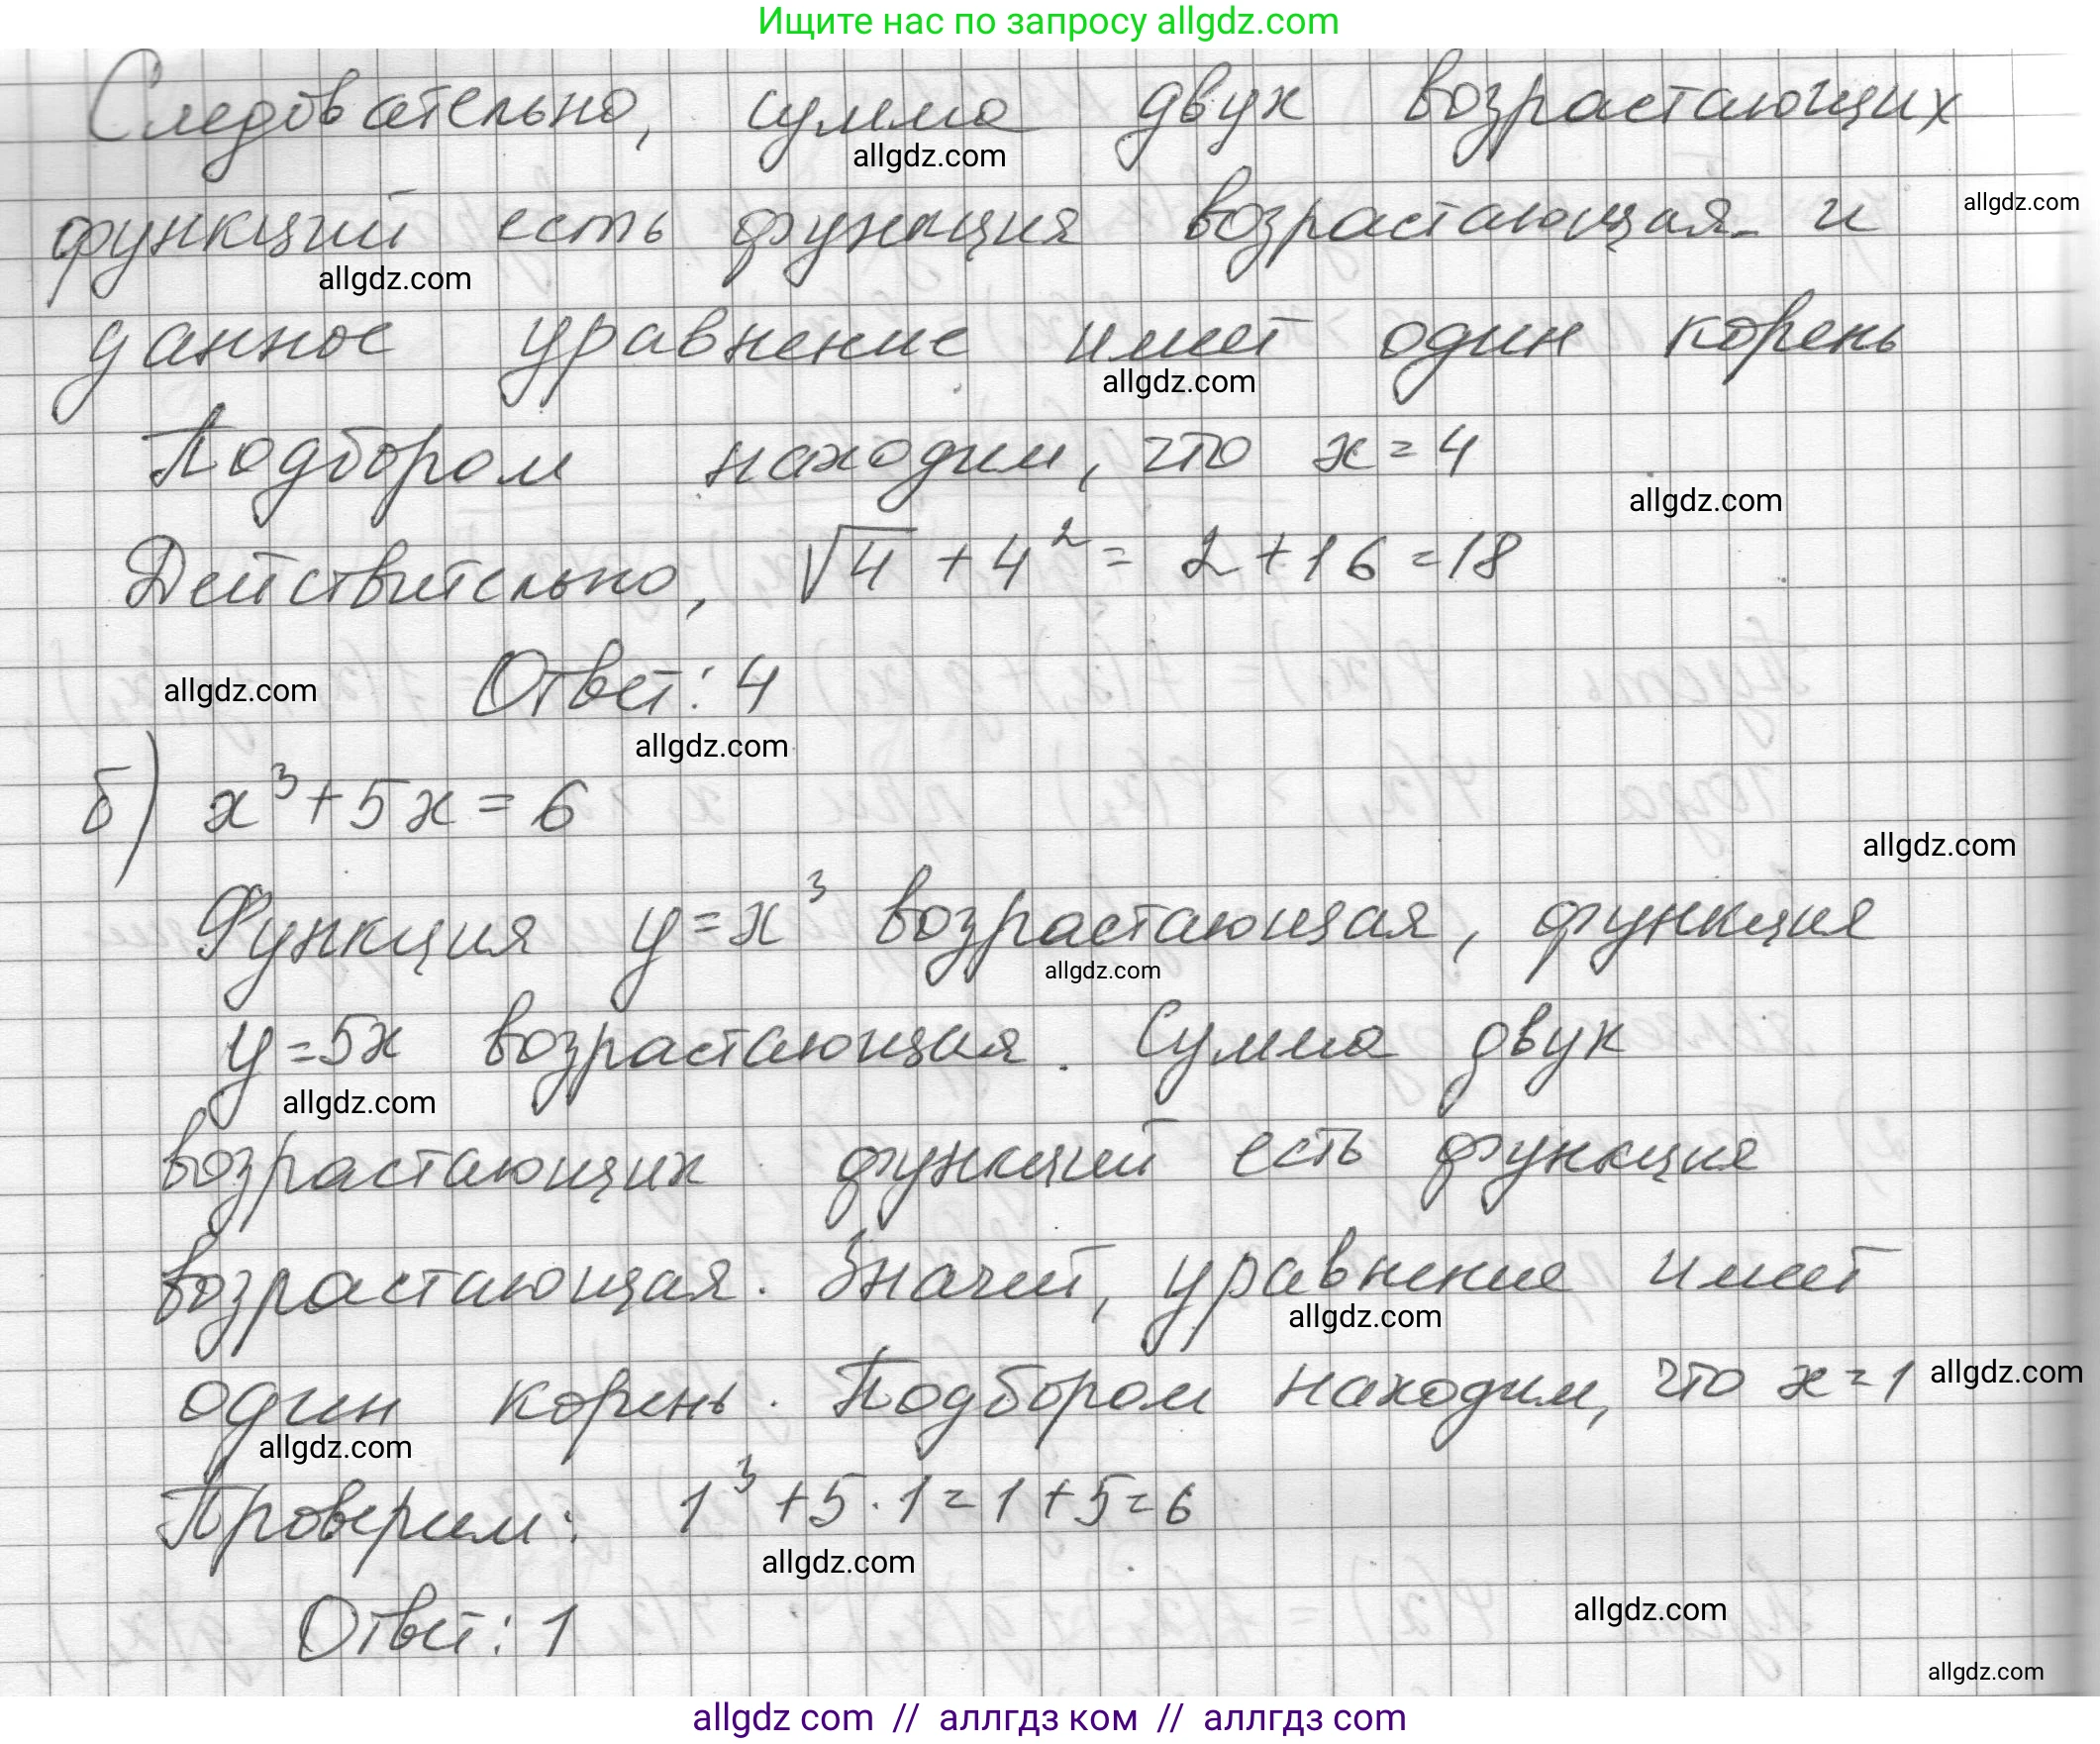 Ищите нас по запросу allgdz.com
Следовательно, сумма двух возрастающих
allgdz.com
allgdz.com
функций есть функция возрастающая и
allgdz.com
данное уравнение имеет один корень
allgdz.com
Подбором находим, что x=4
allgdz.com
Действительно, √4 + 4² = 2 + 16 = 18
allgdz.com
Ответ: 4
allgdz.com
б) x³+5x=6
allgdz.com
Функция y=x³ возрастающая, функция
allgdz.com
y=5x возрастающая. Сумма двух
allgdz.com
возрастающих функций есть функция
возрастающая. Значит, уравнение имеет
allgdz.com
один корень. Подбором находим, что x=1
allgdz.com
allgdz.com
Проверим: 1³+5·1=1+5=6
allgdz.com
allgdz.com
Ответ: 1
allgdz.com
allgdz com // аллгдз ком // аллгдз com